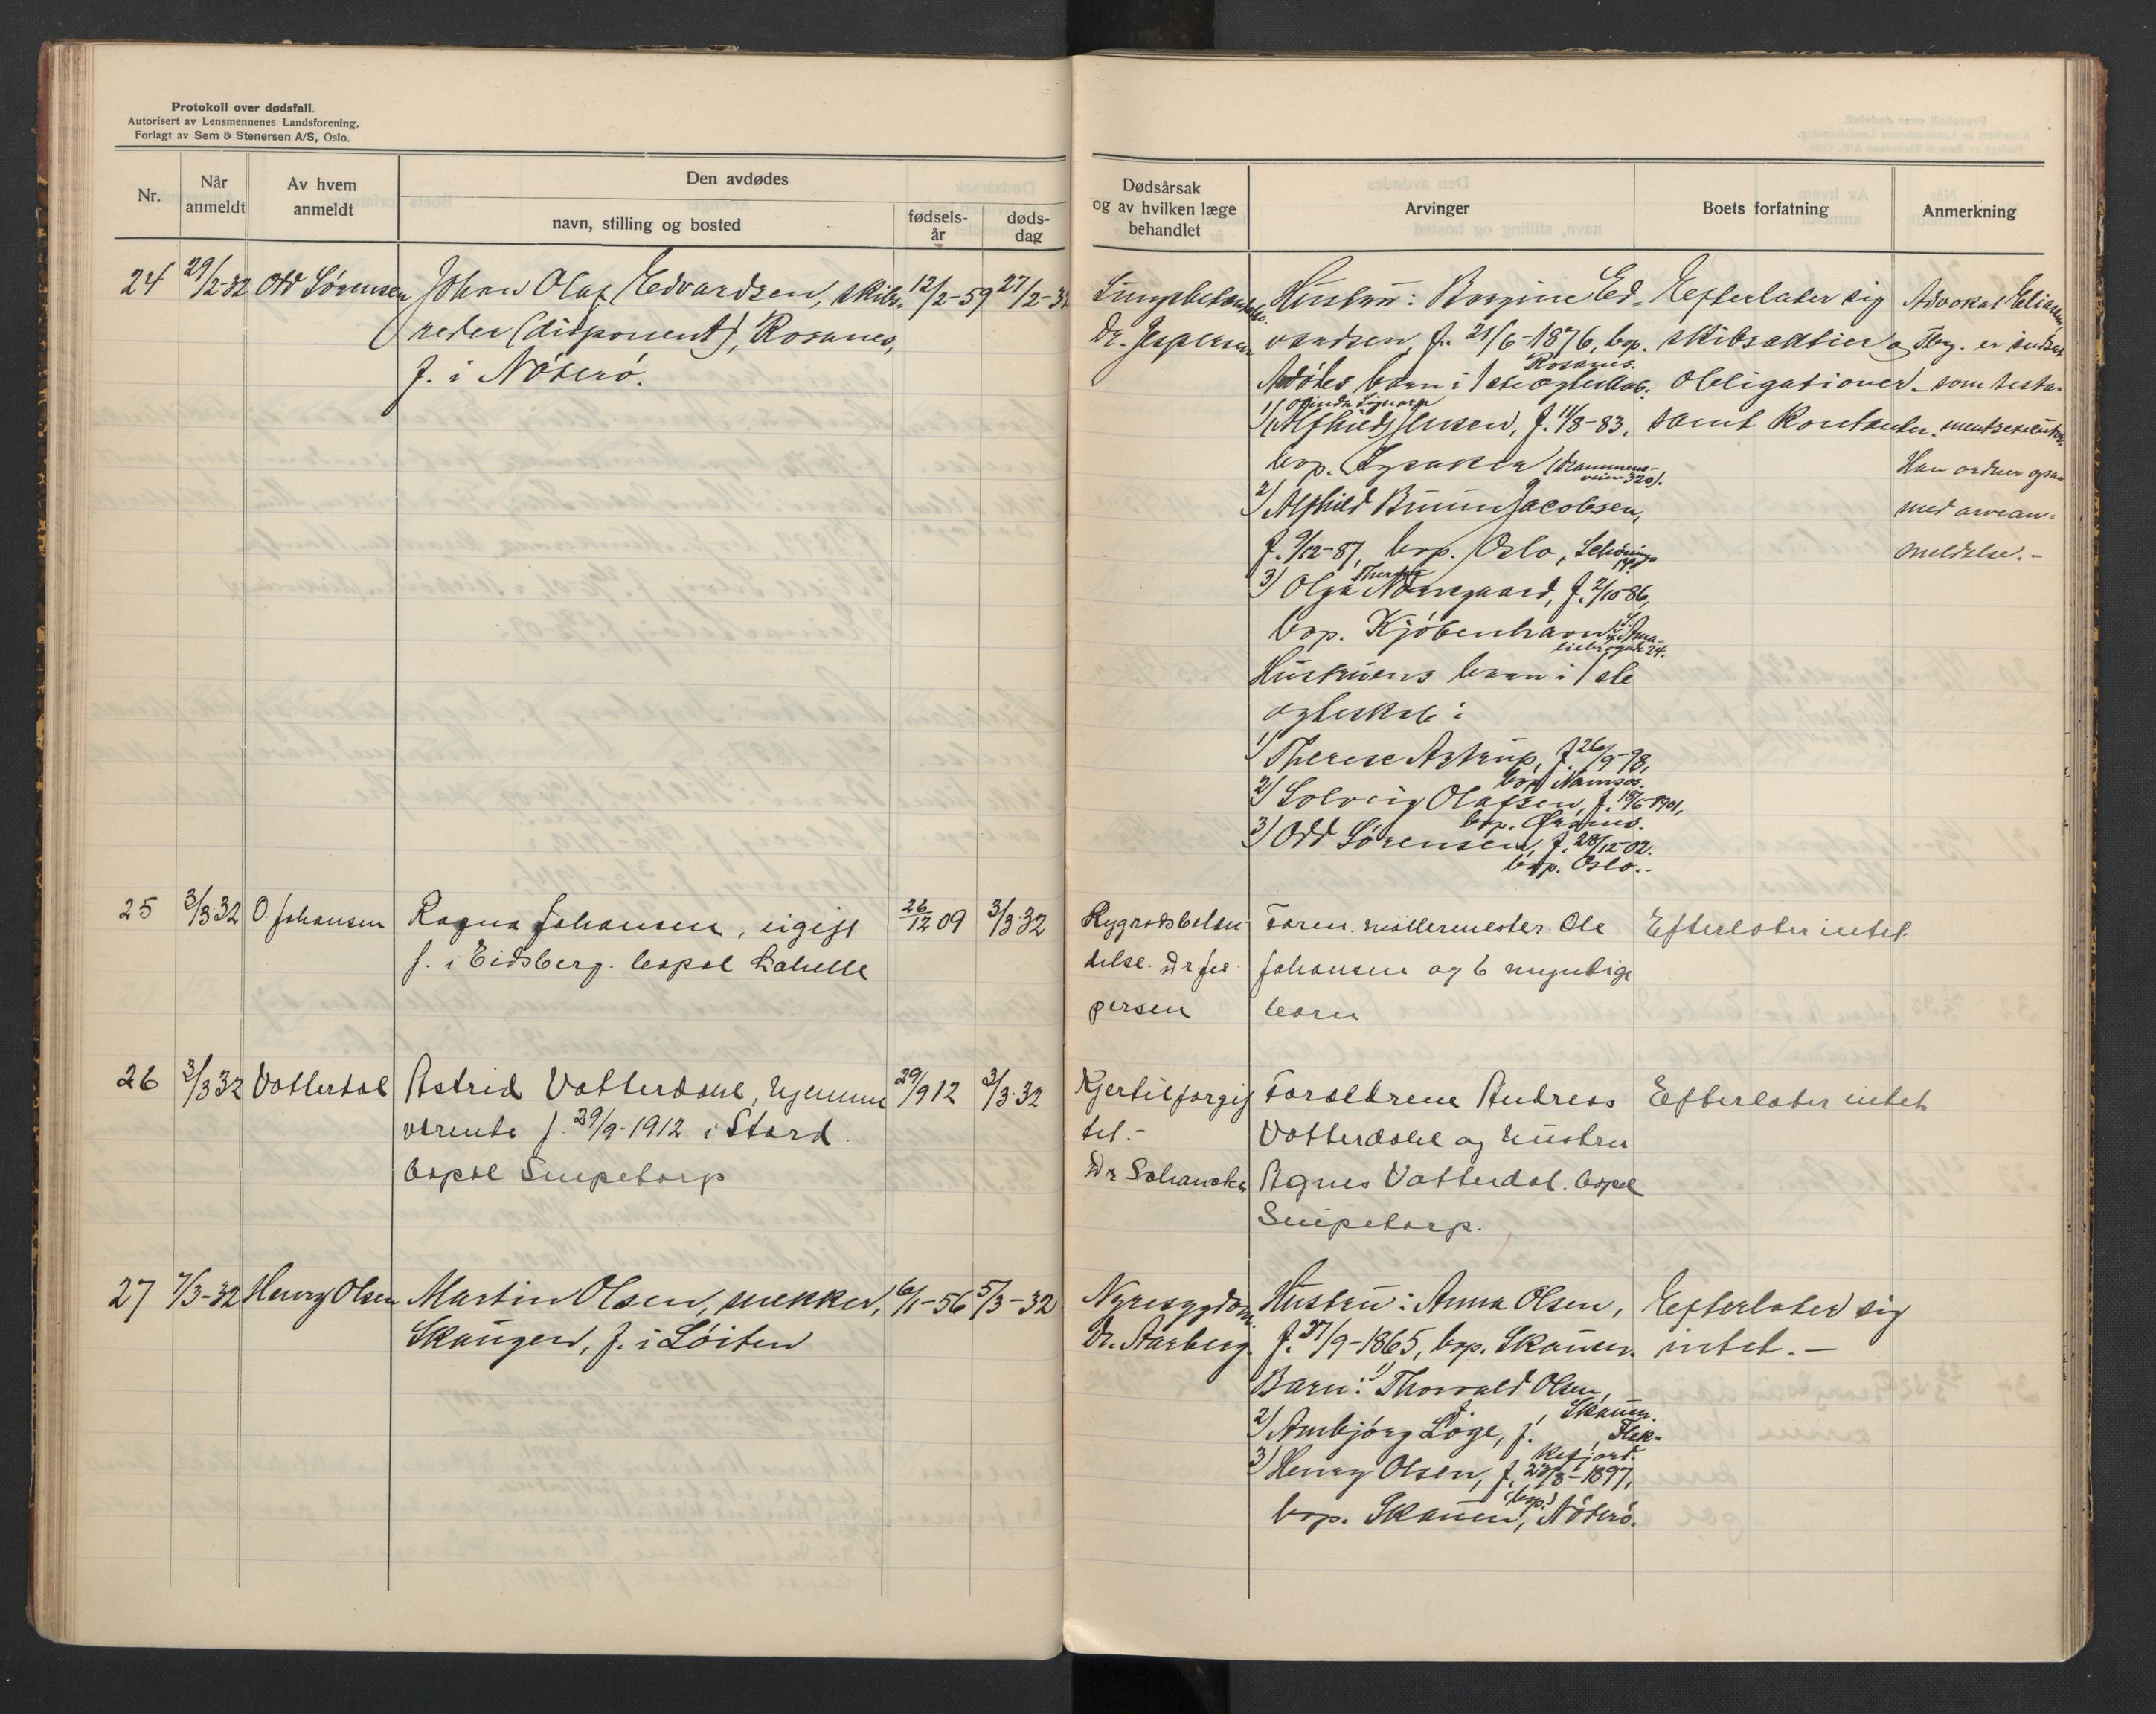 Protokoll over dødsfall.
Autorisert av Lensmennenes Landsforening.
Forlagt av Sem & Stenersen A/S, Oslo.
Nr.
Når anmeldt
Av hvem anmeldt
Den avdødes
navn, stilling og bosted
fødsels-år
døds-dag
Dødsårsak og av hvilken læge behandlet
Arvinger
Boets forfatning
Anmerkning
24 29/2-32 Odd Sørensen Johan Olaf Edvardsen, skibs- 12/2-59 27/2-32
reder (disponent), Rosanes,
f. i Nøterø.
Dr. Jespersen
Hustru: Borgine Ed-
vardsen, f. 21/6-1876, bop.
Rosanes.
Avdødes barn i 1ste egteskab:
1) Alfhild Jensen, f. 11/8-83,
bop. Lysaker (Drammens-
veien 320).
2) Alfhild Bruun Jacobsen,
f. 9/12-87, bop. Oslo,
3) Olga Nørregaard, f. 2/10-86,
bop. Kjøbenhavn
24.
Hustruens barn i 1ste
egteskab:
1) Therese Astrup, f. 26/9-98,
bop. Namsos.
2) Solveig Olafsen, f. 18/6-1901,
bop.
3) Odd Sørensen, f. 28/12-02.
bop. Oslo.-
Efterlater sig
skibsaktier og
obligationer
samt kontanter.
Advokat Eliassen,
Tbg. er indsat
som testa-
mentsexekutor.
Han ordner også
med arvean-
meldelse.-
25 3/3-32 O. Johansen Ragna Johansen, ugift 26/12 09 3/3-32
f. i Eidsberg. bopæl Labelle
Rygradsbeten-
delse. Dr Jes-
persen
Faren. møllermester Ole
Johansen og 6 myndige
barn
Efterlater intet.
26 3/3 32 Vatterdal Astrid Vatterdal, hjemme 29/9 12 3/3-32
værende f. 29/9-1912 i Stord.
bopæl Snipetorp
Kjertelforgif
tet.-
Dr Schanche
Forældrene Andreas
Vatterdal og hustru
Agnes Vatterdal. bopæl
Snipetorp.
Efterlater intet
27 7/3-32 Henry Olsen Martin Olsen, snekker, 6/1-56 5/3-32
Skaugen, f. i Løiten
Nyresygdom.
Dr. Aarberg.
Hustru: Anna Olsen,
f. 27/9-1865, bop. Skauen.
Barn: 1) Thorvald Olsen,
f. , Skauen.
2) Arnbjørg Løge, f. , Flek-
kefjord.
3) Henry Olsen, f. 23/8-1897,
bop. Skauen, Nøterø.
(bop.)
Efterlater sig
intet.-